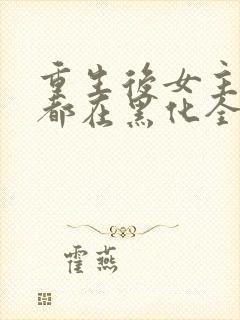 重生後女主
都在黑化全
霍燕